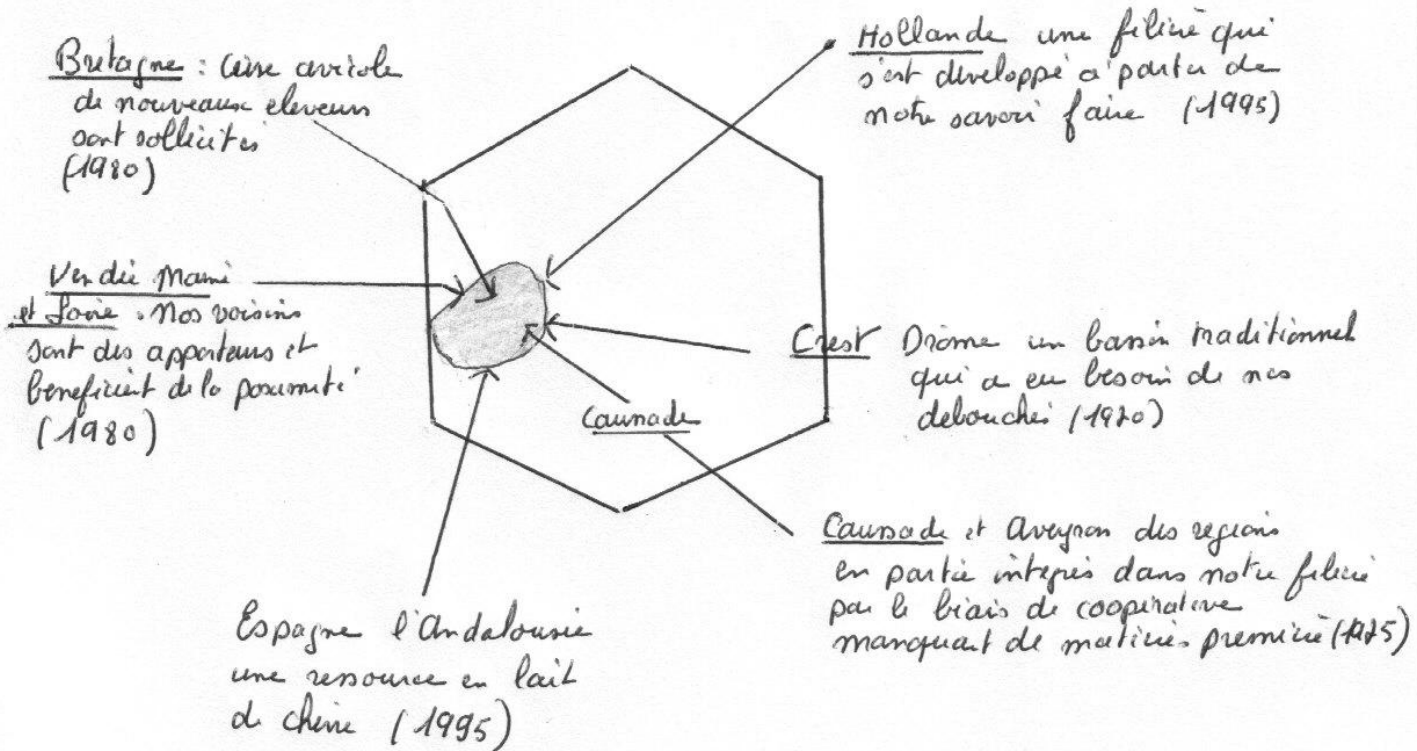 Bretagne : Crise avicole
de nouveaux eleveurs
sont sollicités
(1980)
Hollande une filière qui
s'est développé a partir de
notre savoir faire (1995)
Vendée Maine
et Loire . Nos voisins
sont des apporteurs et
beneficient de la proximité
(1980)
Crest Drôme un bassin traditionnel
qui a eu besoin de nos
debouchés
Caussade
Caussade et Aveyron des regions
en partie integrés dans notre filière
par le biais de cooperative
manquant de matières première
Espagne l'Andalousie
une ressource en lait
de chèvre (1995)